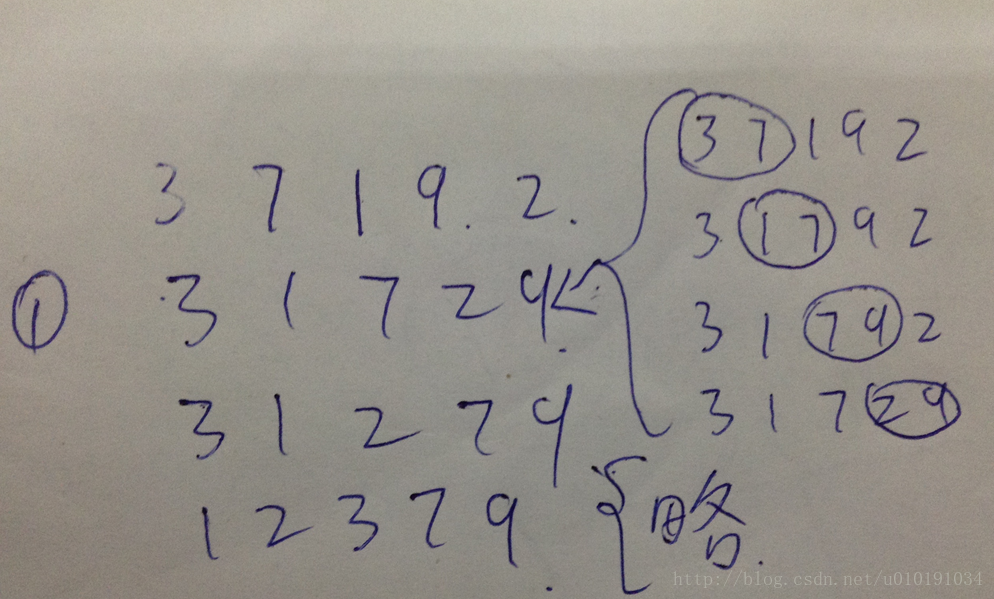 3 7 1 9. 2.
① 3 1 7 2 9.
3 1 2 7 9
1 2 3 7 9.
3 7 1 9 2
3 1 7 9 2
3 1 7 9 2
3 1 7 2 9
略.
http://blog.csdn.net/u010191034